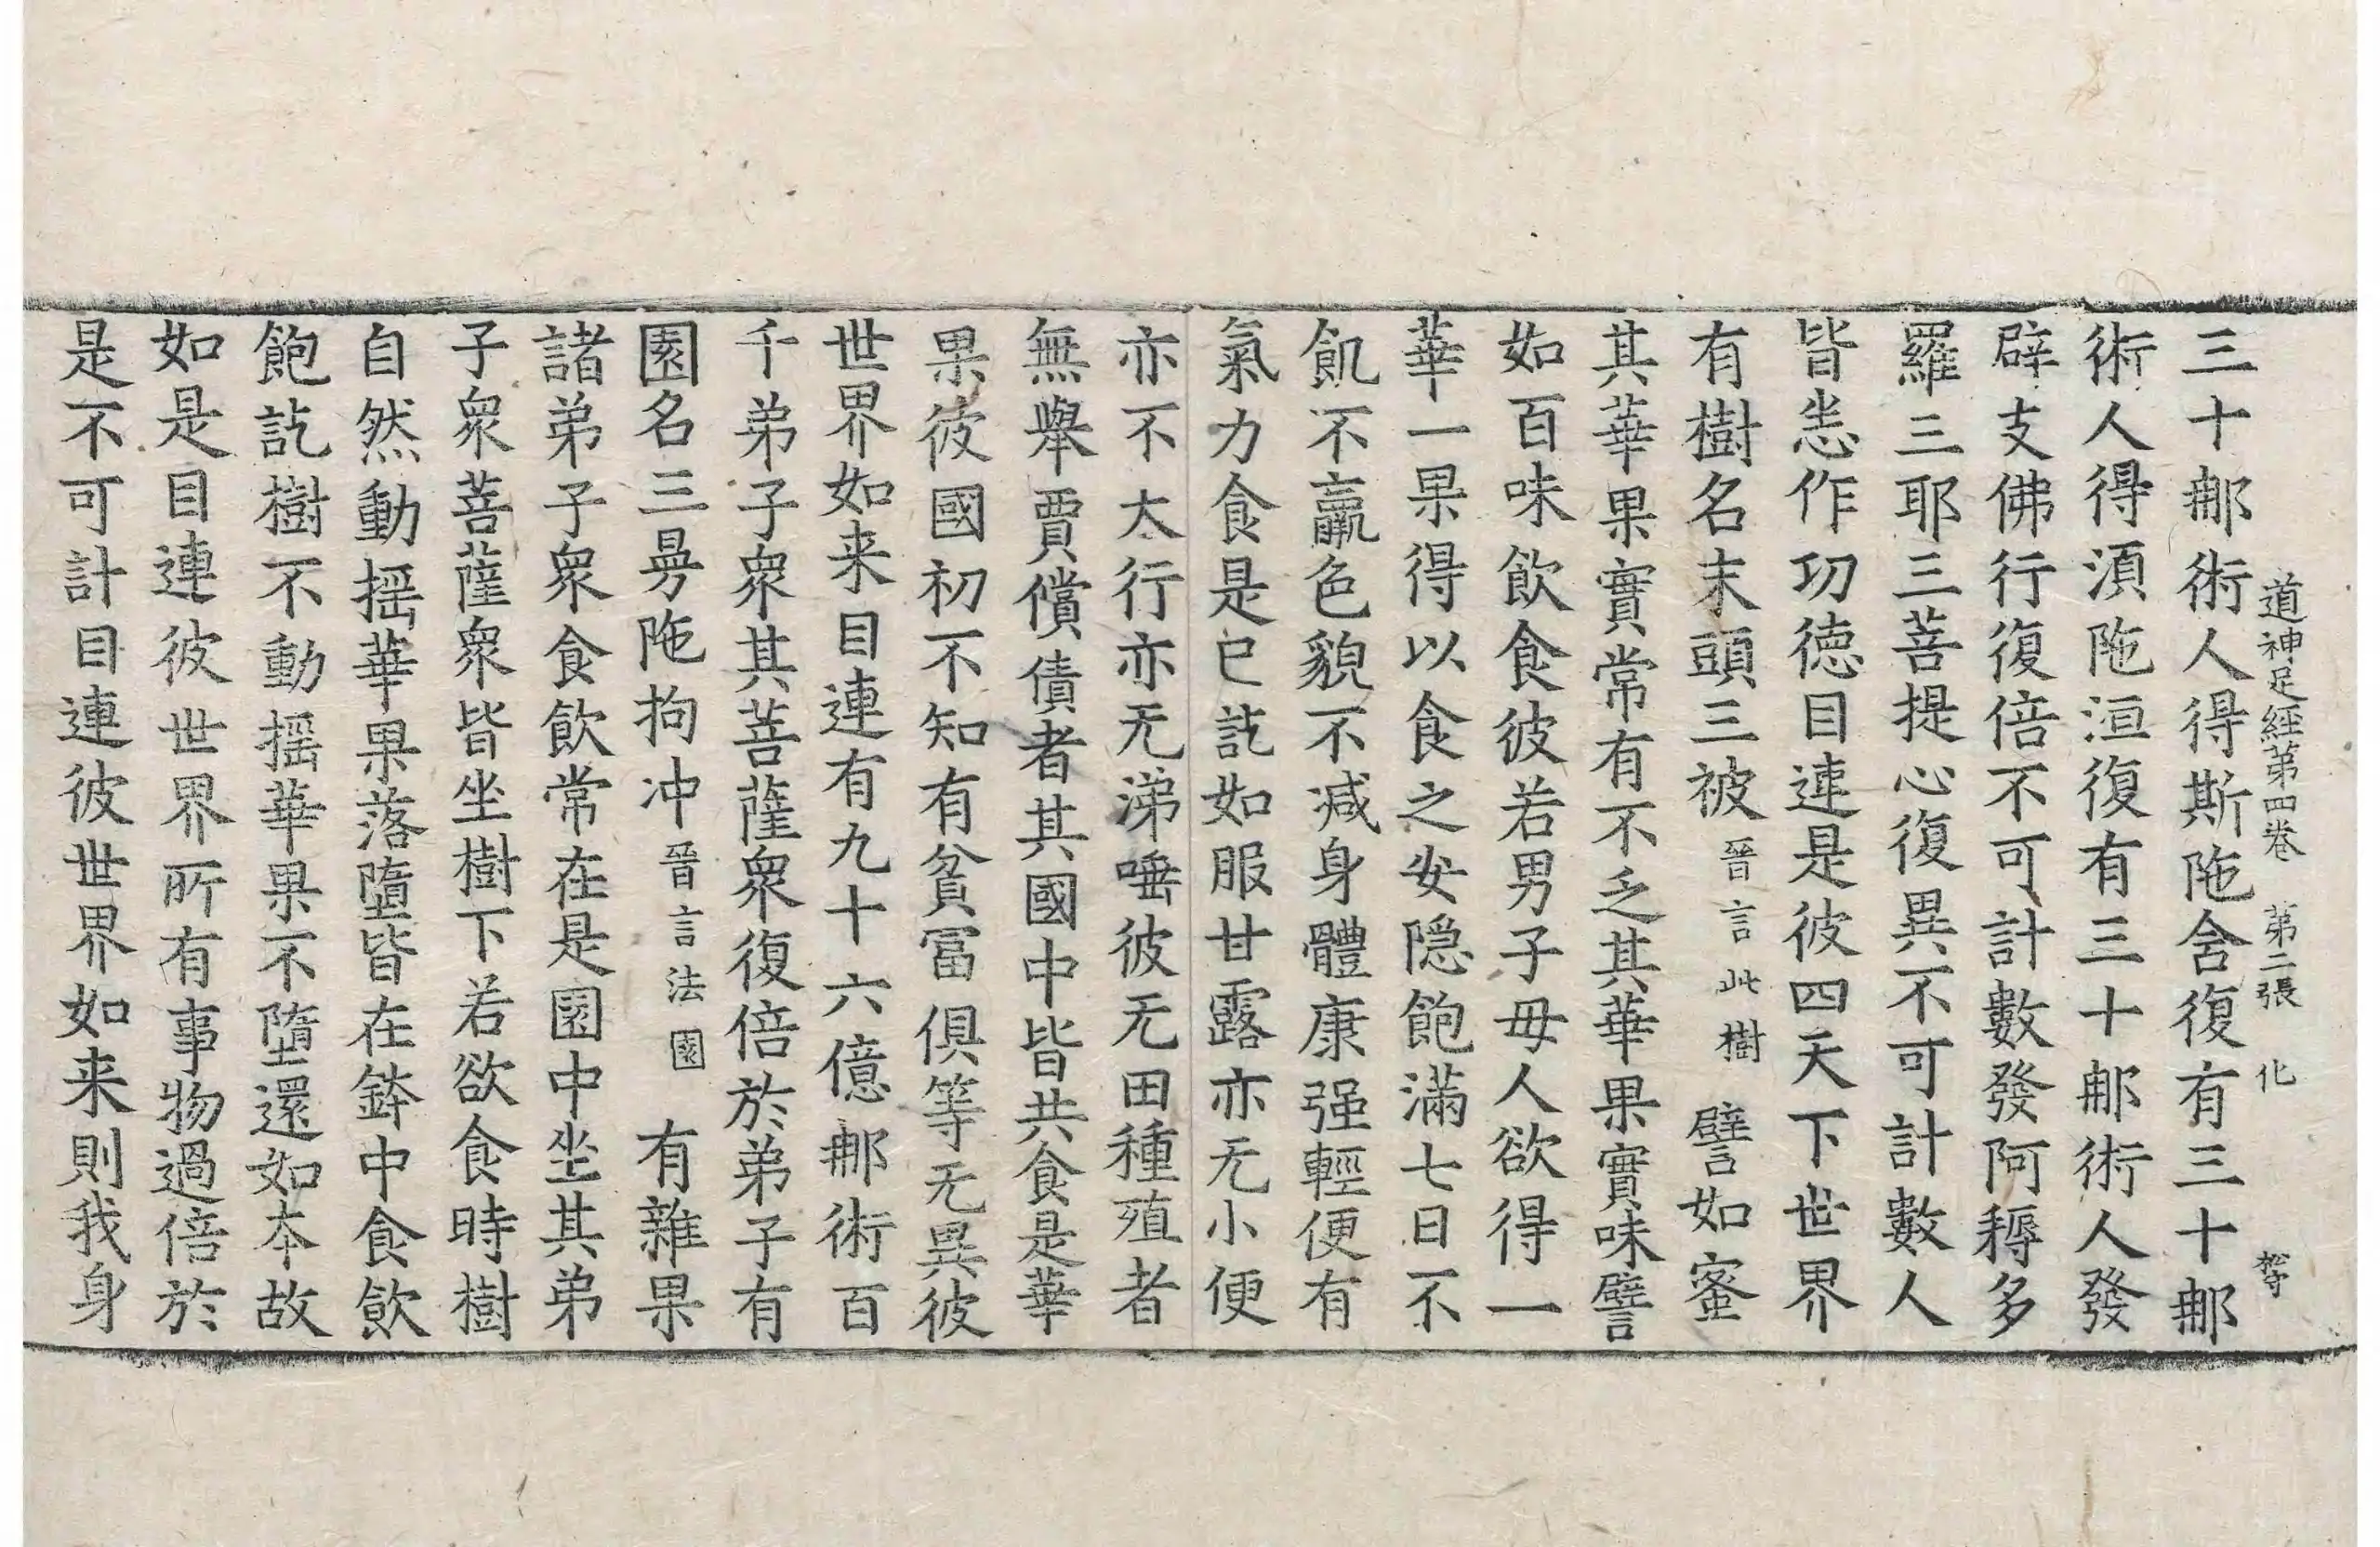 道神足經第四卷　第二張　化
三十那術人得斯陁舍復有三十那
術人得湏陁洹復有三十那術人發
辟支佛行復倍不可計數發阿耨多
羅三耶三菩提心復異不可計數人
皆恙作功德目連是彼四天下世界
有樹名末頭三被晉言此樹譬如蜜
其華果實常有不乏其華果實味譬
如百味飲食彼若男子母人欲得一
華一果得以食之安隱飽滿七日不
飢不羸色貌不減身體康强輕便有
氣力食是已訖如服甘露亦无小便
亦不大行亦无涕唾彼无田種殖者
無舉賈償債者其國中皆共食是華
果彼國初不知有貧冨俱等无異彼
世界如来目連有九十六億那術百
千弟子衆其菩薩衆復倍於弟子有
園名三昺陁拘冲晉言法園有雜果
諸弟子衆食飲常在是園中坐其弟
子衆菩薩衆皆坐樹下若欲食時樹
自然動揺華果落墮皆在鉢中食飲
飽訖樹不動揺華果不墮還如本故
如是目連彼世界所有事物過倍於
是不可計目連彼世界如来則我身